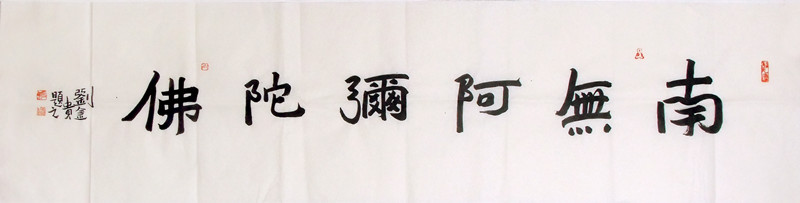 南無阿彌陀佛
劉進貴
題之